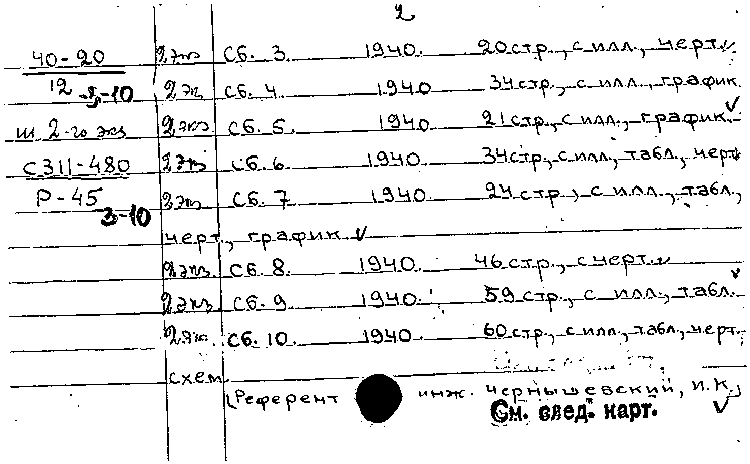 2
40-20 2 экз Сб. 3. 1940. 20 стр., с илл., черт.
12 3-10 2 экз Сб. 4. 1940 34 стр., с илл., график.
ш. 2-го экз 2 экз Сб. 5. 1940. 21 стр., с илл., график.
С311-480 2 экз Сб. 6 1940. 34 стр., с илл., табл., черт.
Р-45 2 экз Сб. 7 1940. 24 стр., с илл., табл.,
3-10
черт., график
2 экз. Сб. 8. 1940. 46 стр., с черт.
2 экз Сб. 9 1940. 59 стр., с илл., табл.
2 экз. Сб. 10. 1940. 60 стр., с илл., табл., черт.
схем.
(Референт инж. Чернышевский, И.К.)
См. след. карт.